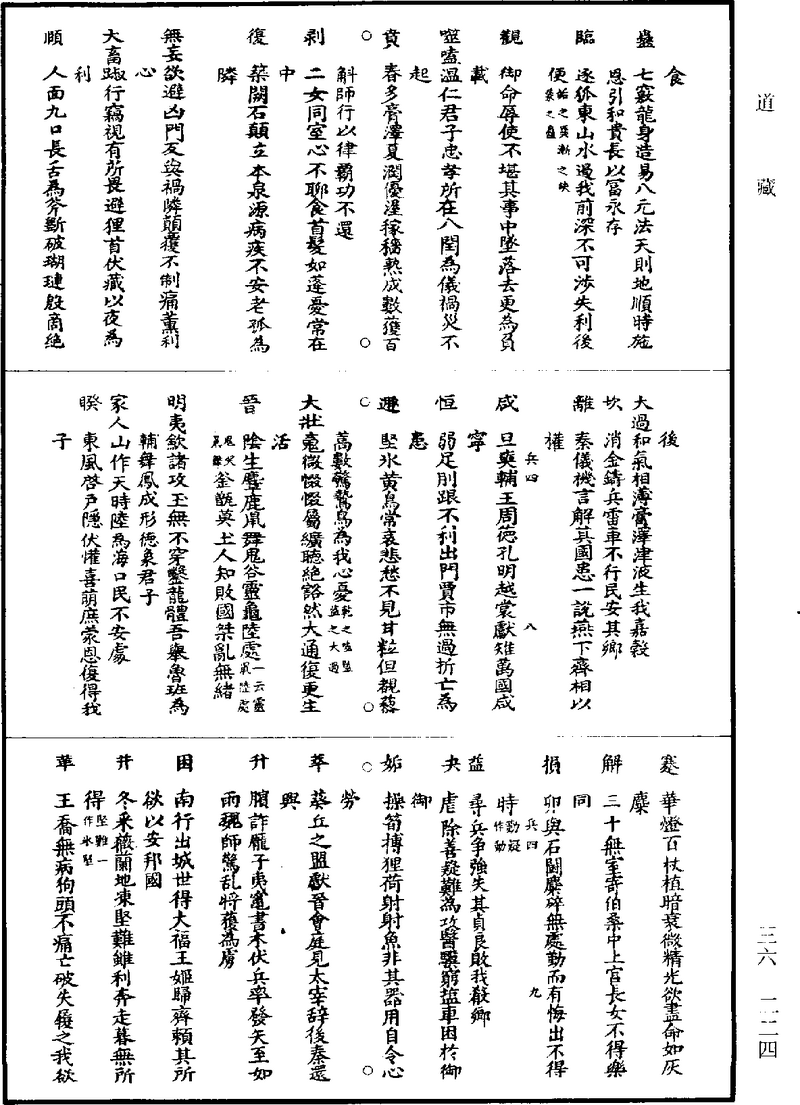 道藏
三六 二二四
食
蠱 七竅龍身造易八元法天則地順時施
恩引和貴長以富永存
臨 逐狐東山水過我前深不可涉失利後
便
觀 御命辱使不堪其事中墜落去更為負
載
噬嗑溫仁君子忠孝所在八閨為儀禍災不
起
賁 春多膏澤夏潤優渥稼穡熟成數獲百
斛師行以律霸功不還
剥 二女同室心不聊食首髮如蓬憂常在
中
復 築闕石顛立本泉源病疾不安老孤為
隣
無妄欲避凶門反與禍隣顛覆不制痛薰利
心
大畜踧行竊視有所畏避狸首伏藏以夜為
利
頤 人面九口長舌為斧斷破瑚璉殷商絶
後
大過和氣相薄膏澤津液生我嘉穀
坎 消金鑄兵雷車不行民安其鄉
離 秦儀機言解其國患一説燕下齊相以
權
兵四 八
咸 旦奭輔王周德孔明越裳獻雉萬國咸
寧
恒 弱足刖跟不利出門賈市無過折亡為
患
遯 堅氷黄鳥常哀悲愁不見甘粒但覩藜
蒿數驚鷙鳥為我心憂 乾之噬嗑 益之大過
大壯鳧微惙惙屬纊聽絶豁然大通復更生
活
晋 陰生麈鹿鼠舞鬼谷靈龜陸處 一云靈
釜甑莫土人知敗國桀亂無緒
明夷欽諸攻玉無不穿鑿龍體吾舉魯班為
輔舞鳳成形德象君子
家人山作天時陸為海口民不安處
睽 東風啓戶隱伏懽喜萌庶蒙恩復得我
子
蹇 華燈百枝植暗衰微精光欲盡命如灰
麋
解 三十無室寄伯桑中上宫長女不得樂
同
兵四 九
損 卵與石鬬麋碎無處動而有悔出不得
時 勤疑作動
益 尋兵争強失其貞良敗我殽鄉
夬 虐除善疑難為攻醫驥窮塩車困於御
御
姤 操筍搏狸荷射射魚非其器用自令心
勞
萃 葵丘之盟獻晉會庭見太宰辭後秦還
興
升 臏詐龐子夷竈書木伏兵率發矢至如
雨魏師驚乱將獲為虜
困 南行出城世得大福王姬歸齊賴其所
欲以安邦國
井 冬采薇蘭地凍堅難雖利奔走暮無所
得 堅難一作氷堅
革 王喬無病狗頭不痛亡破失履之我欲